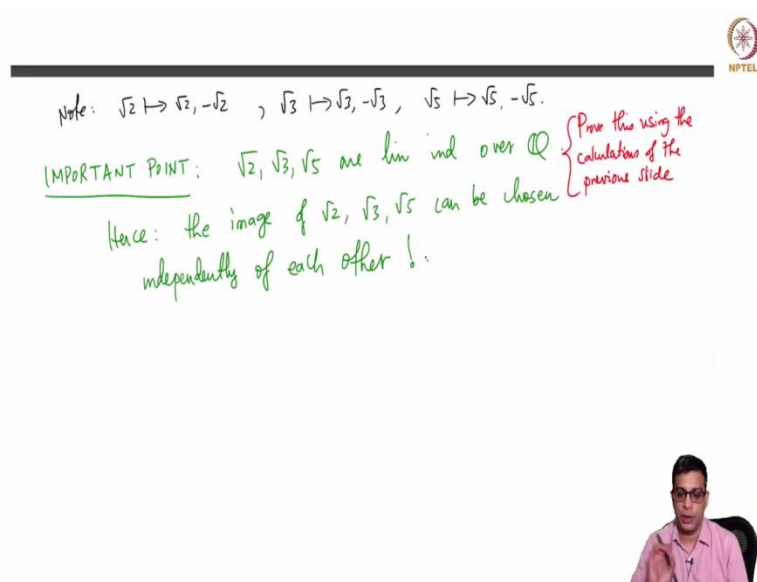 NPTEL
Note: √2 ↦ √2, -√2 , √3 ↦ √3, -√3 , √5 ↦ √5, -√5.
IMPORTANT POINT: √2, √3, √5 are lin ind over ℚ.
Prove this using the
calculations of the
previous slide
Hence: the image of √2, √3, √5 can be chosen
independently of each other !.